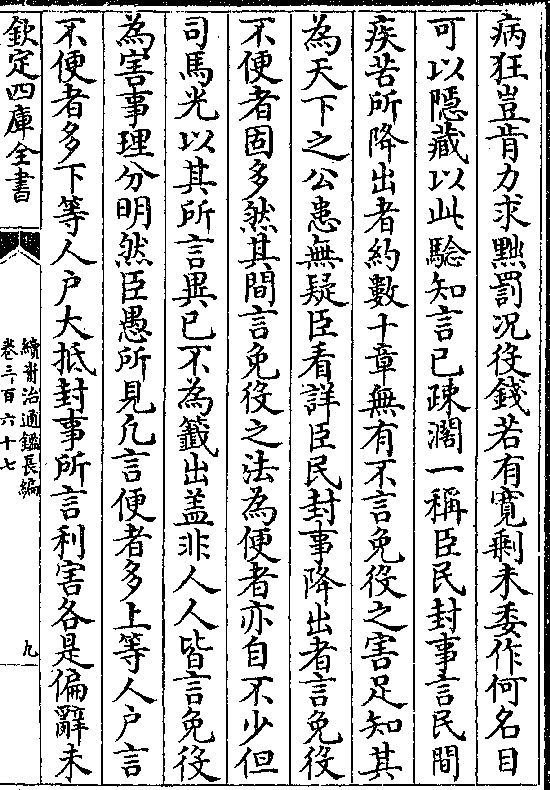 病狂豈肯力求黜罰况役錢若有寛剰未委作何名目
可以隠藏以此驗知言已疎濶一稱臣民封事言民間
疾苦所降出者約數十章無有不言免役之害足知其
為天下之公患無疑臣看詳臣民封事降出者言免役
不便者固多然其間言免役之法為便者亦自不少但
司馬光以其所言異已不為籖出盖非人人皆言免役
為害事理分明然臣愚所見凢言便者多上等人户言
不便者多下等人户大抵封事所言利害各是偏辭未
欽定四庫全書
續資治通鑑長編
卷三百六十七
九